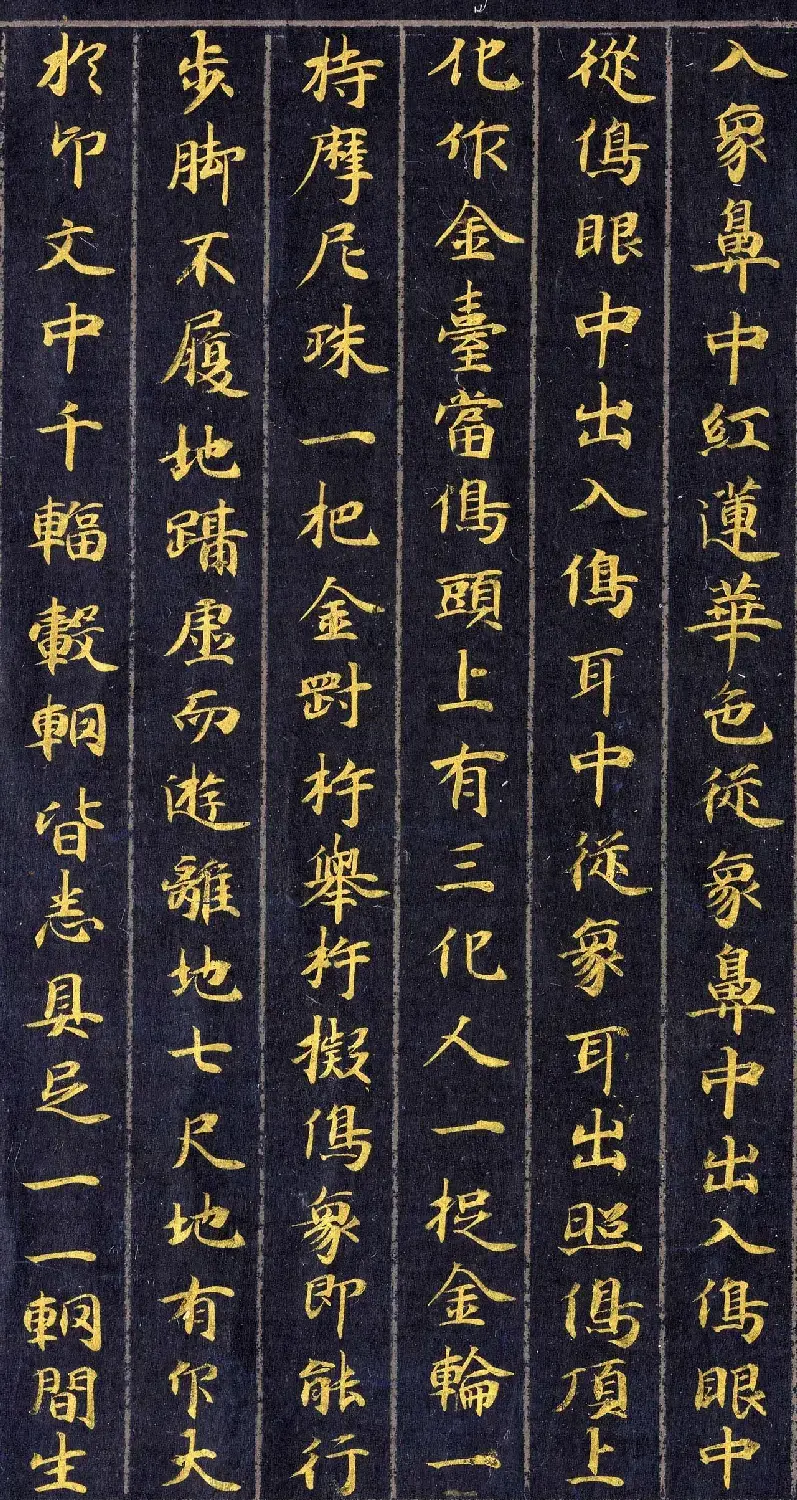 入象鼻中紅蓮華色從象鼻中出入傿眼中
從傿眼中出入傿耳中從象耳出照傿頂上
化作金臺當傿頭上有三化人一捉金輪一
持摩尼珠一把金剛杵舉杵擬傿象即能行
步脚不履地躡虛而遊離地七尺地有印大
於印文中千輻轂輞皆悉具足一一輞間生